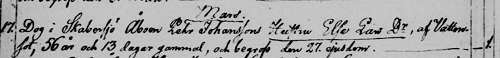 Mars.
17. Dog i Skabersjö Åboen Pehr Johanssons Hustru Else Lars Dr, af Vatten-
hot, 56 år och 13 dagar gammal, och begrofs den 27 ejusdem. 1.